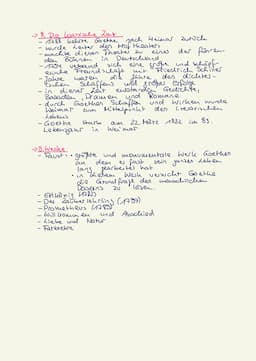 → 3. Die klassische Zeit
- 1788 kehrte Goethe nach Weimar zurück
- wurde Leiter des Hoftheaters
- machte dieses Theater zu einer der führen-
den Bühnen in Deutschland
- 1794 verband sich eine große und schöpf-
Freundschaft mit Friedrich Schiller
- Jahre waren die Jahre des dichte-
rischen Schaffens und großer Erfolge
- in dieser Zeit entstanden Gedichte,
Balladen, Dramen und Romane
- durch Goethes Schaffen und Wirken wurde
Weimar zum Mittelpunkt des literarischen
Lebens
- Goethe starb am 22. März 1832 im 83.
Lebensjahr in Weimar
→ Werke
- Faust • größte und monumentalste Werk Goethes
an dem er fast sein ganzes Leben
lang gearbeitet hat
• in diesem Werk versucht Goethe
die Grundfrage des menschlichen
Daseins zu lösen
- Erlkönig
- Der Zauberlehrling (1797)
- Prometheus
- Willkommen und Abschied
- Liebe und Natur
- Farbenlehre